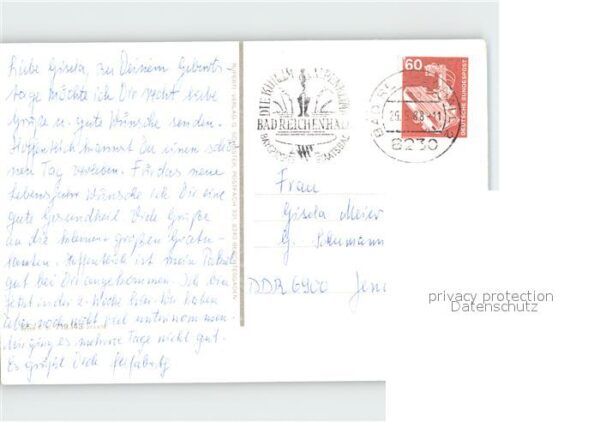 Liebe Gisela, zu Deinem Geburts-
tage möchte ich Dir recht liebe
Grüße u. gute Wünsche senden.
Hoffentlich kannst Du einen schö-
nen Tag verleben. Für das neue
Lebensjahr wünsche ich Dir eine
gute Gesundheit. Viele Grüße
an die kleinen + großen Gratu-
lanten. Hoffentlich ist mein Paket
gut bei Dir angekommen. Ich bin
jetzt in der 2. Woche hier. Wir haben
aber noch nicht viel unternommen.
Mir ging es mehrere Tage nicht gut.
Es grüßt Dich
BAD REICHENHALL
8230
60
DEUTSCHE BUNDESPOST
Frau
Gisela Meier
G.
DDR 6900 Jena
privacy protection
Datenschutz